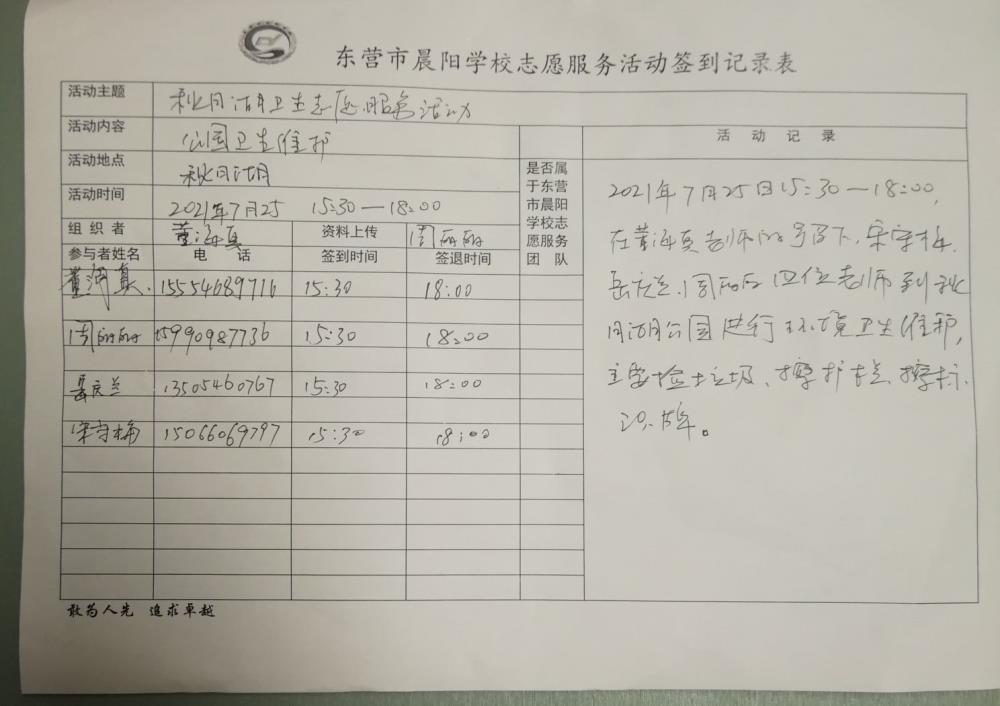 东营市晨阳学校志愿服务活动签到记录表
活动主题 秋月湖卫生志愿服务活动
活动内容 公园卫生维护
活动地点 秋月湖
活动时间 2021年7月25 15:30—18:00
组织者 董海真 资料上传 周丽丽
参与者姓名 电话 签到时间 签退时间
是否属
于东营
市晨阳
学校志
愿服务
团队
董海真 15554689716 15:30 18:00
周丽丽 15990987736 15:30 18:00
岳庆兰 13505460767 15:30 18:00
宋守梅 15066069797 15:30 18:00
活动记录
2021年7月25日15:30—18:00,
在董海真老师的带领下,宋守梅、
岳庆兰、周丽丽四位老师到秋
月湖公园进行环境卫生维护,
主要捡垃圾、擦护栏、擦标
识牌。
敢为人先 追求卓越